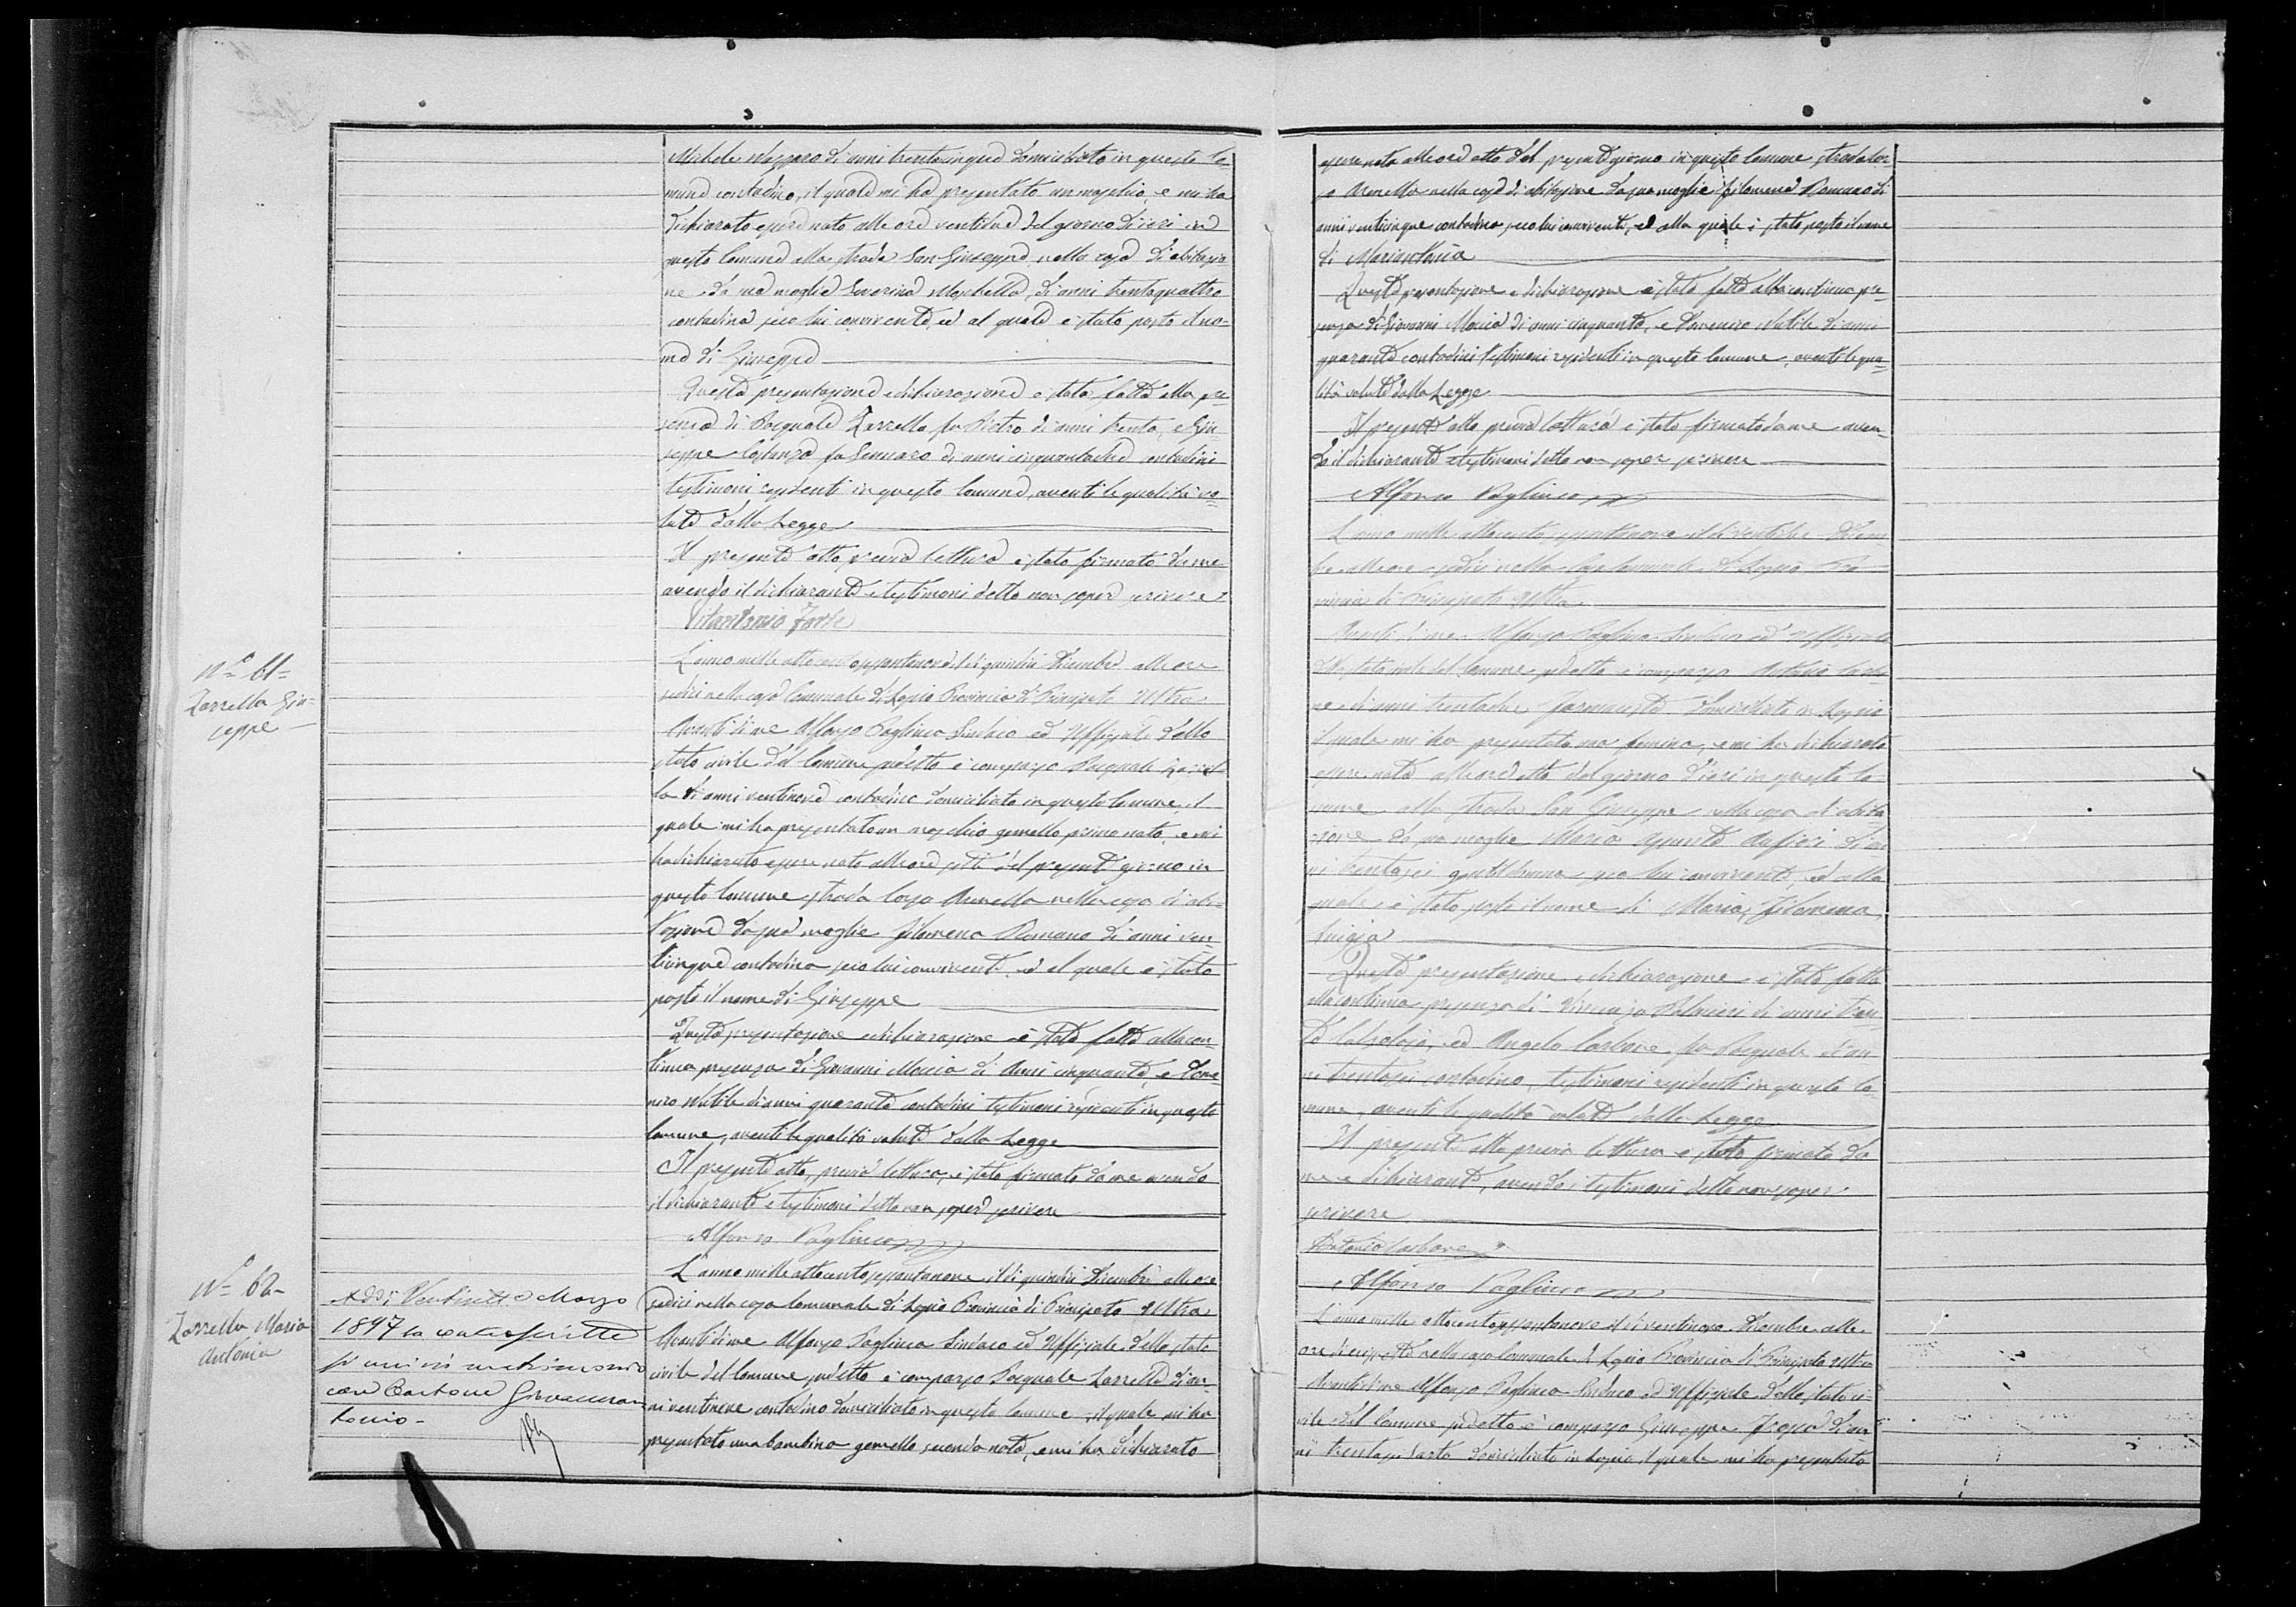 Michele Nazzaro di anni trentacinque domiciliato in questo Co-
mune contadino, il quale mi ha presentato un maschio, e mi ha
dichiarato essere nato alle ore ventidue del giorno di ieri in
questo Comune alla strada San Giuseppe nella casa di abitazio-
ne da sua moglie Saverina Moschella, di anni trentaquattro
contadina seco lui convivente, ed al quale è stato posto il no-
me di Giuseppe
Questa presentazione e dichiarazione è stata fatta alla pre-
senza di Pasquale Zarrella fu Pietro di anni trenta, e Giu-
seppe Costanza fu Gennaro di anni cinquantadue contadini
testimoni residenti in questo Comune, aventi le qualità vo-
lute dalla Legge
Il presente atto previa lettura è stato firmato da me
avendo il dichiarante e testimoni detto non saper scrivere
Vitantonio Forte
N.° 61=
Zarrella Giu=
seppe
L'anno mille ottocentosettantanove il di quindici Dicembre alle ore
sedici nella casa Comunale di Lapio Provincia di Principato Ultra
Avanti di me Alfonso Pagliuca Sindaco ed Uffiziale dello
stato civile del Comune sudetto è comparso Pasquale Zarrel-
la di anni ventinove contadino domiciliato in questo Comune il
quale mi ha presentato un maschio gemello primo nato, e mi
ha dichiarato essere nato alle ore sette del presente giorno in
questo Comune strada Corso Arenella nella casa di abi-
tazione da sua moglie Filomena Romano di anni ven-
ticinque contadina seco lui convivente, ed al quale è stato
posto il nome di Giuseppe
Questa presentazione e dichiarazione è stata fatta alla con-
tinua presenza di Giovanni Moccia di anni cinquanta, e
Nubile di anni quaranta contadini testimoni residenti in questo
Comune, aventi le qualità volute dalla Legge
Il presente atto, previa lettura, è stato firmato da me avendo
il dichiarante e testimoni detto non saper scrivere
Alfonso Pagliuca
N.° 62-
Zarrella Maria
Antonia
Addi Ventisette Marzo
1897 la contrascritta
si unì in matrimonio
con Carbone Giovannan
tonio-
L'anno mille ottocentosettantanove il di quindici Dicembre alle ore
sedici nella casa Comunale di Lapio Provincia di Principato Ultra
Avanti di me Alfonso Pagliuca Sindaco ed Uffiziale dello stato
civile del Comune sudetto è comparso Pasquale Zarrella di an-
ni ventinove contadino domiciliato in questo Comune, il quale mi ha
presentato una bambina gemella seconda nata, e mi ha dichiarato
essere nata alle ore otto del presente giorno in questo Comune strada Cor-
so Arenella nella casa di abitazione da sua moglie Filomena Romano di
anni venticinque contadina seco lui convivente, ed alla quale è stato posto il nome
di Mariantonia
Questa presentazione e dichiarazione è stata fatta alla continua pre-
senza di Giovanni Moccia di anni cinquanta, e Nubile di anni
quaranta contadini testimoni residenti in questo Comune, aventi le qua-
lità volute dalla Legge
Il presente atto previa lettura è stato firmato da me aven-
do il dichiarante e testimoni detto non saper scrivere
Alfonso Pagliuca
L'anno mille ottocento settantanove il di Dicem-
bre alle ore sedici nella Casa Comunale di Lapio Pro-
vincia di Principato Ultra
Avanti di me Alfonso Pagliuca Sindaco ed Uffiziale
dello stato civile del Comune sudetto è comparso Antonio Carbo-
ne di anni trentadue farmacista domiciliato in Lapio
il quale mi ha presentato una femina, e mi ha dichiarato
essere nata alle ore otto del giorno di ieri in questo Co-
mune alla strada San Giuseppe nella casa di abita-
zione da sua moglie Maria Assunta di an
ni trentasei gentildonna seco lui convivente, ed alla
quale è stato posto il nome di Maria, Filomena,
Luigia
Questa presentazione e dichiarazione è stata fatta
alla continua presenza di Vincenzo Palmieri di anni tren-
ta calzolajo, ed Angelo Carbone fu Pasquale di an-
ni trentasei contadino, testimoni residenti in questo Co-
mune, aventi le qualità volute dalla Legge
Il presente atto previa lettura è stato firmato da
me e dichiarante, avendo i testimoni detto non saper
scrivere
Antonio Carbone
Alfonso Pagliuca
L'anno mille ottocentosettantanove il di ventinove Dicembre alle
ore diecissette nella casa Comunale di Lapio Provincia di Principato Ultra
Avanti di me Alfonso Pagliuca Sindaco ed Uffiziale dello stato ci-
vile del Comune sudetto è comparso Giuseppe di an-
ni trentasei sarto domiciliato in Lapio, il quale mi ha presentato